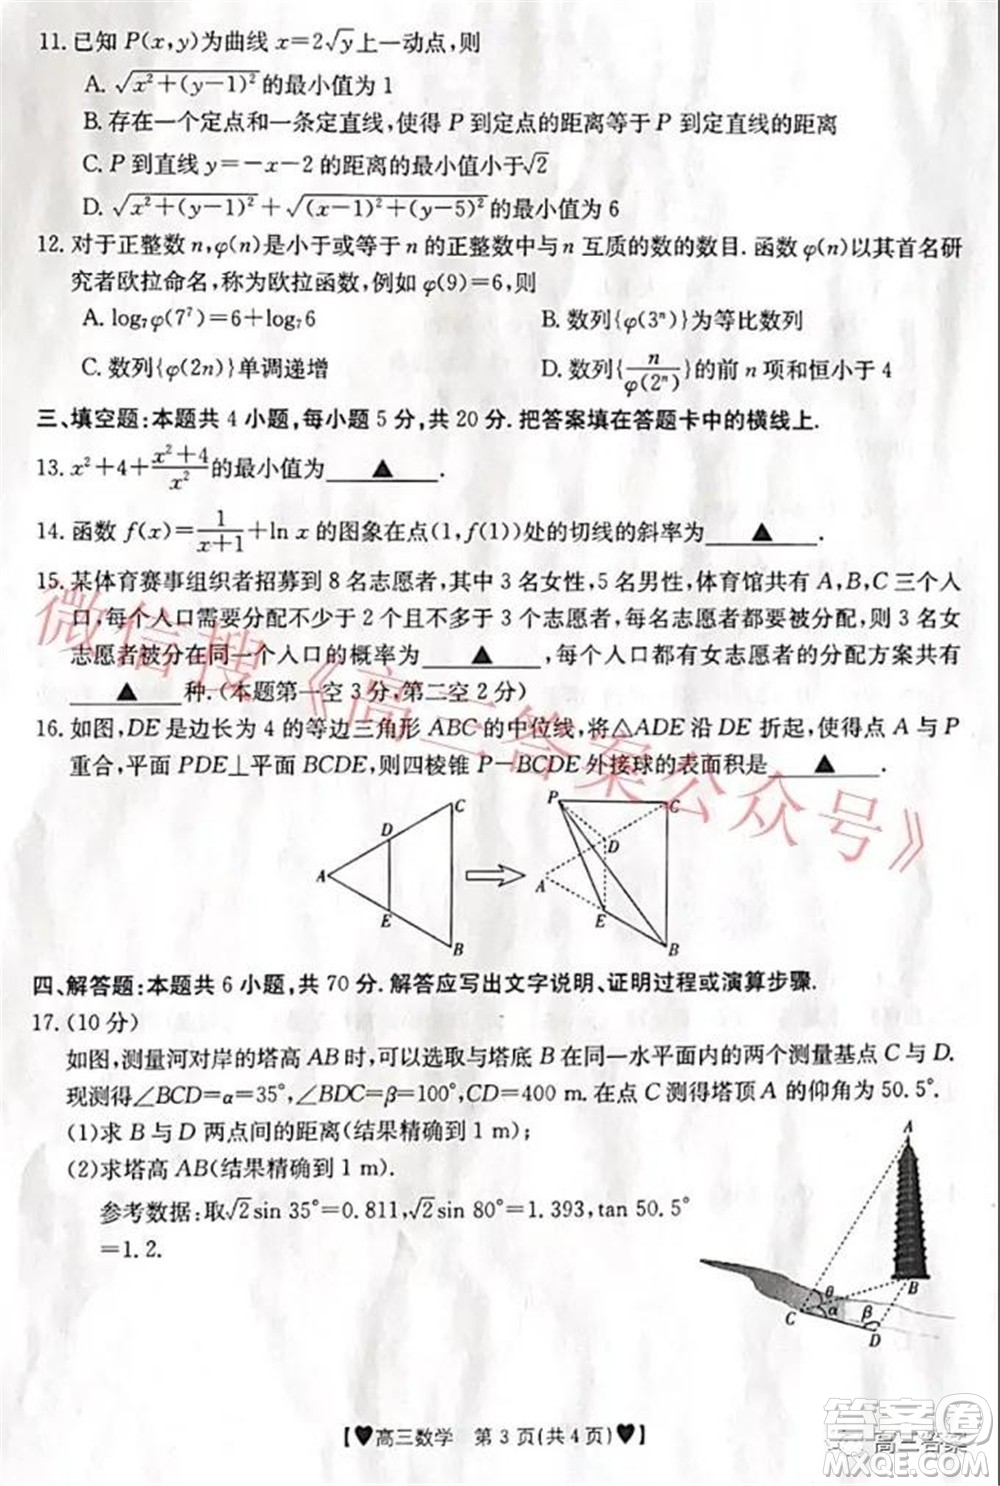 11. 已知 P(x,y)为曲线 x=2√y上一动点,则
A. √(x²+(y-1)²)的最小值为 1
B. 存在一个定点和一条定直线,使得 P 到定点的距离等于 P 到定直线的距离
C. P 到直线 y=-x-2 的距离的最小值小于√2
D. √(x²+(y-1)²)+√((x-1)²+(y-5)²)的最小值为 6
12. 对于正整数 n,φ(n)是小于或等于 n 的正整数中与 n 互质的数的数目. 函数 φ(n)以其首名研
究者欧拉命名,称为欧拉函数,例如 φ(9)=6,则
A. log₇φ(7⁷)=6+log₇6 B. 数列{φ(3ⁿ)}为等比数列
C. 数列{φ(2n)}单调递增 D. 数列{n/φ(2ⁿ)}的前 n 项和恒小于 4
三、填空题:本题共 4 小题,每小题 5 分,共 20 分. 把答案填在答题卡中的横线上.
13. x²+4+(x²+4)/x²的最小值为 ▲ .
14. 函数 f(x)=1/(x+1)+ln x 的图象在点(1,f(1))处的切线的斜率为 ▲ .
15. 某体育赛事组织者招募到 8 名志愿者,其中 3 名女性,5 名男性,体育馆共有 A,B,C 三个入
口,每个入口需要分配不少于 2 个且不多于 3 个志愿者,每名志愿者都要被分配,则 3 名女
志愿者被分在同一个入口的概率为 ▲ ,每个入口都有女志愿者的分配方案共有
▲ 种. (本题第一空 3 分,第二空 2 分)
16. 如图,DE 是边长为 4 的等边三角形 ABC 的中位线,将△ADE 沿 DE 折起,使得点 A 与 P
重合,平面 PDE⊥平面 BCDE,则四棱锥 P—BCDE 外接球的表面积是 ▲ .
A D E C B
P C D A E B
微信搜《高三答案公众号》
四、解答题:本题共 6 小题,共 70 分. 解答应写出文字说明、证明过程或演算步骤.
17. (10 分)
如图,测量河对岸的塔高 AB 时,可以选取与塔底 B 在同一水平面内的两个测量基点 C 与 D.
现测得∠BCD=α=35°,∠BDC=β=100°,CD=400 m. 在点 C 测得塔顶 A 的仰角为 50.5°.
(1)求 B 与 D 两点间的距离(结果精确到 1 m);
(2)求塔高 AB(结果精确到 1 m).
参考数据:取√2sin 35°=0.811,√2sin 80°=1.393,tan 50.5°
=1.2.
A B C D θ α β
【♥高三数学 第 3 页(共 4 页)♥】
答案卷
高三答案
MXQE.COM